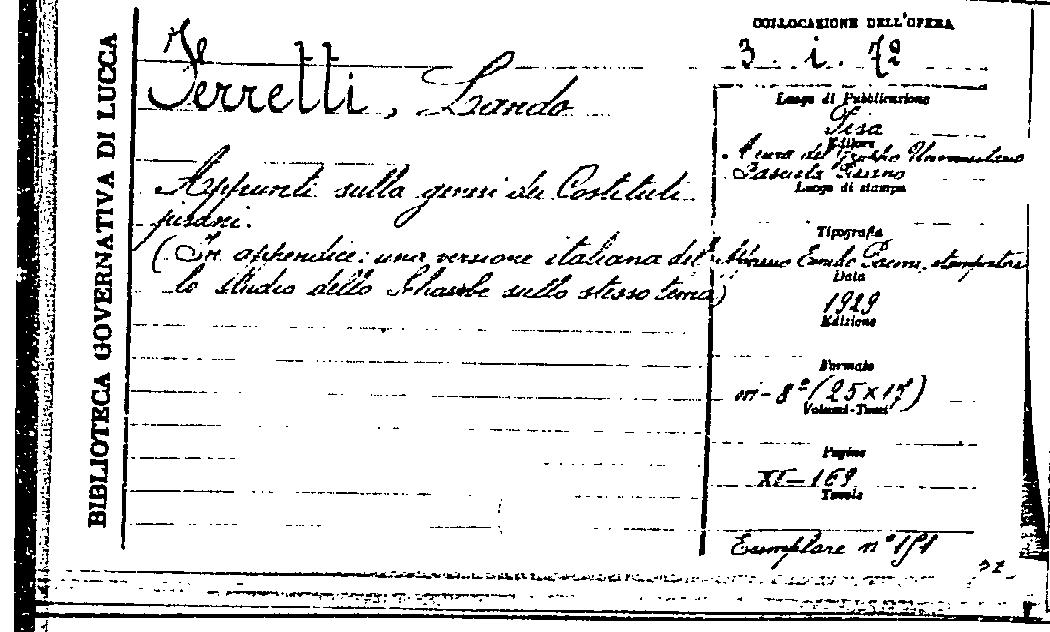 BIBLIOTECA GOVERNATIVA DI LUCCA
Fe
Ferretti, Lando
Appunti sulla genesi dei Costituti
pisani.
(In appendice: una versione italiana del
lo studio dello Schaube sullo stesso tema)
COLLOCAZIONE DELL'OPERA
3. i. 72
Luogo di Pubblicazione
Pisa
Editore
A cura del Gruppo Universitario
Fascista Pisano
Luogo di stampa
Tipografia
Emilio Pacini, stampatore
Data
1929
Edizione
Formato
in-8º (25x17)
Volumi-Tomi
Pagine
XI-169
Tavole
Esemplare nº 191